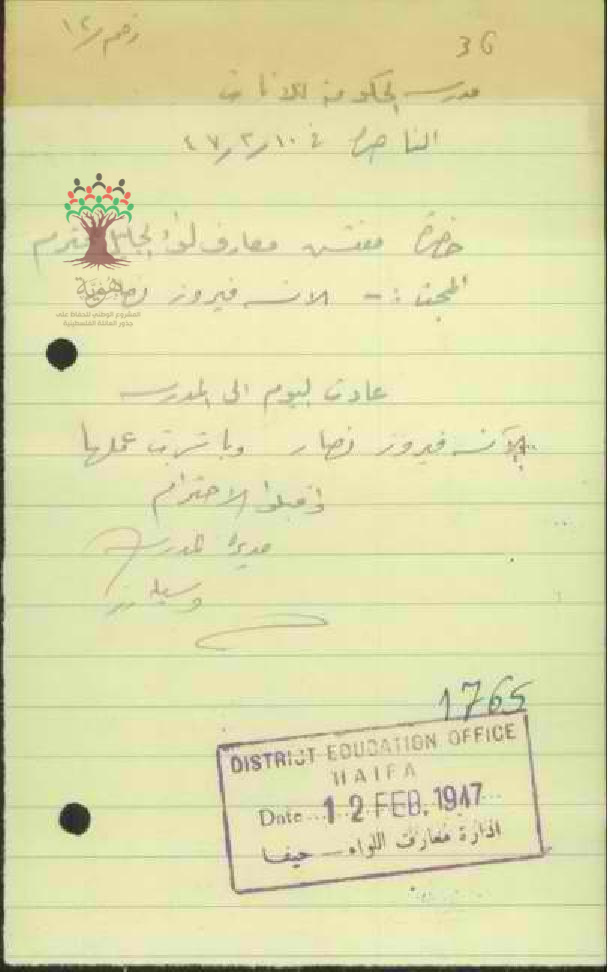 36
مدرسة الحكومة للاناث
الناصرة في ١٠/٢/٤٧
حضرة مفتش معارف لواء الجليل المحترم
المبحث :- الانسه فيروز نصار
عادت اليوم الى المدرسه
الآنسه فيروز نصار وباشرت عملها
واقبلوا الاحترام
مديرة المدرسة
هوية
المشروع الوطني للحفاظ على
جذور العائلة الفلسطينية
1765
DISTRICT EDUCATION OFFICE
HAIFA
Date 12 FEB. 1947
ادارة معارف اللواء - حيفا